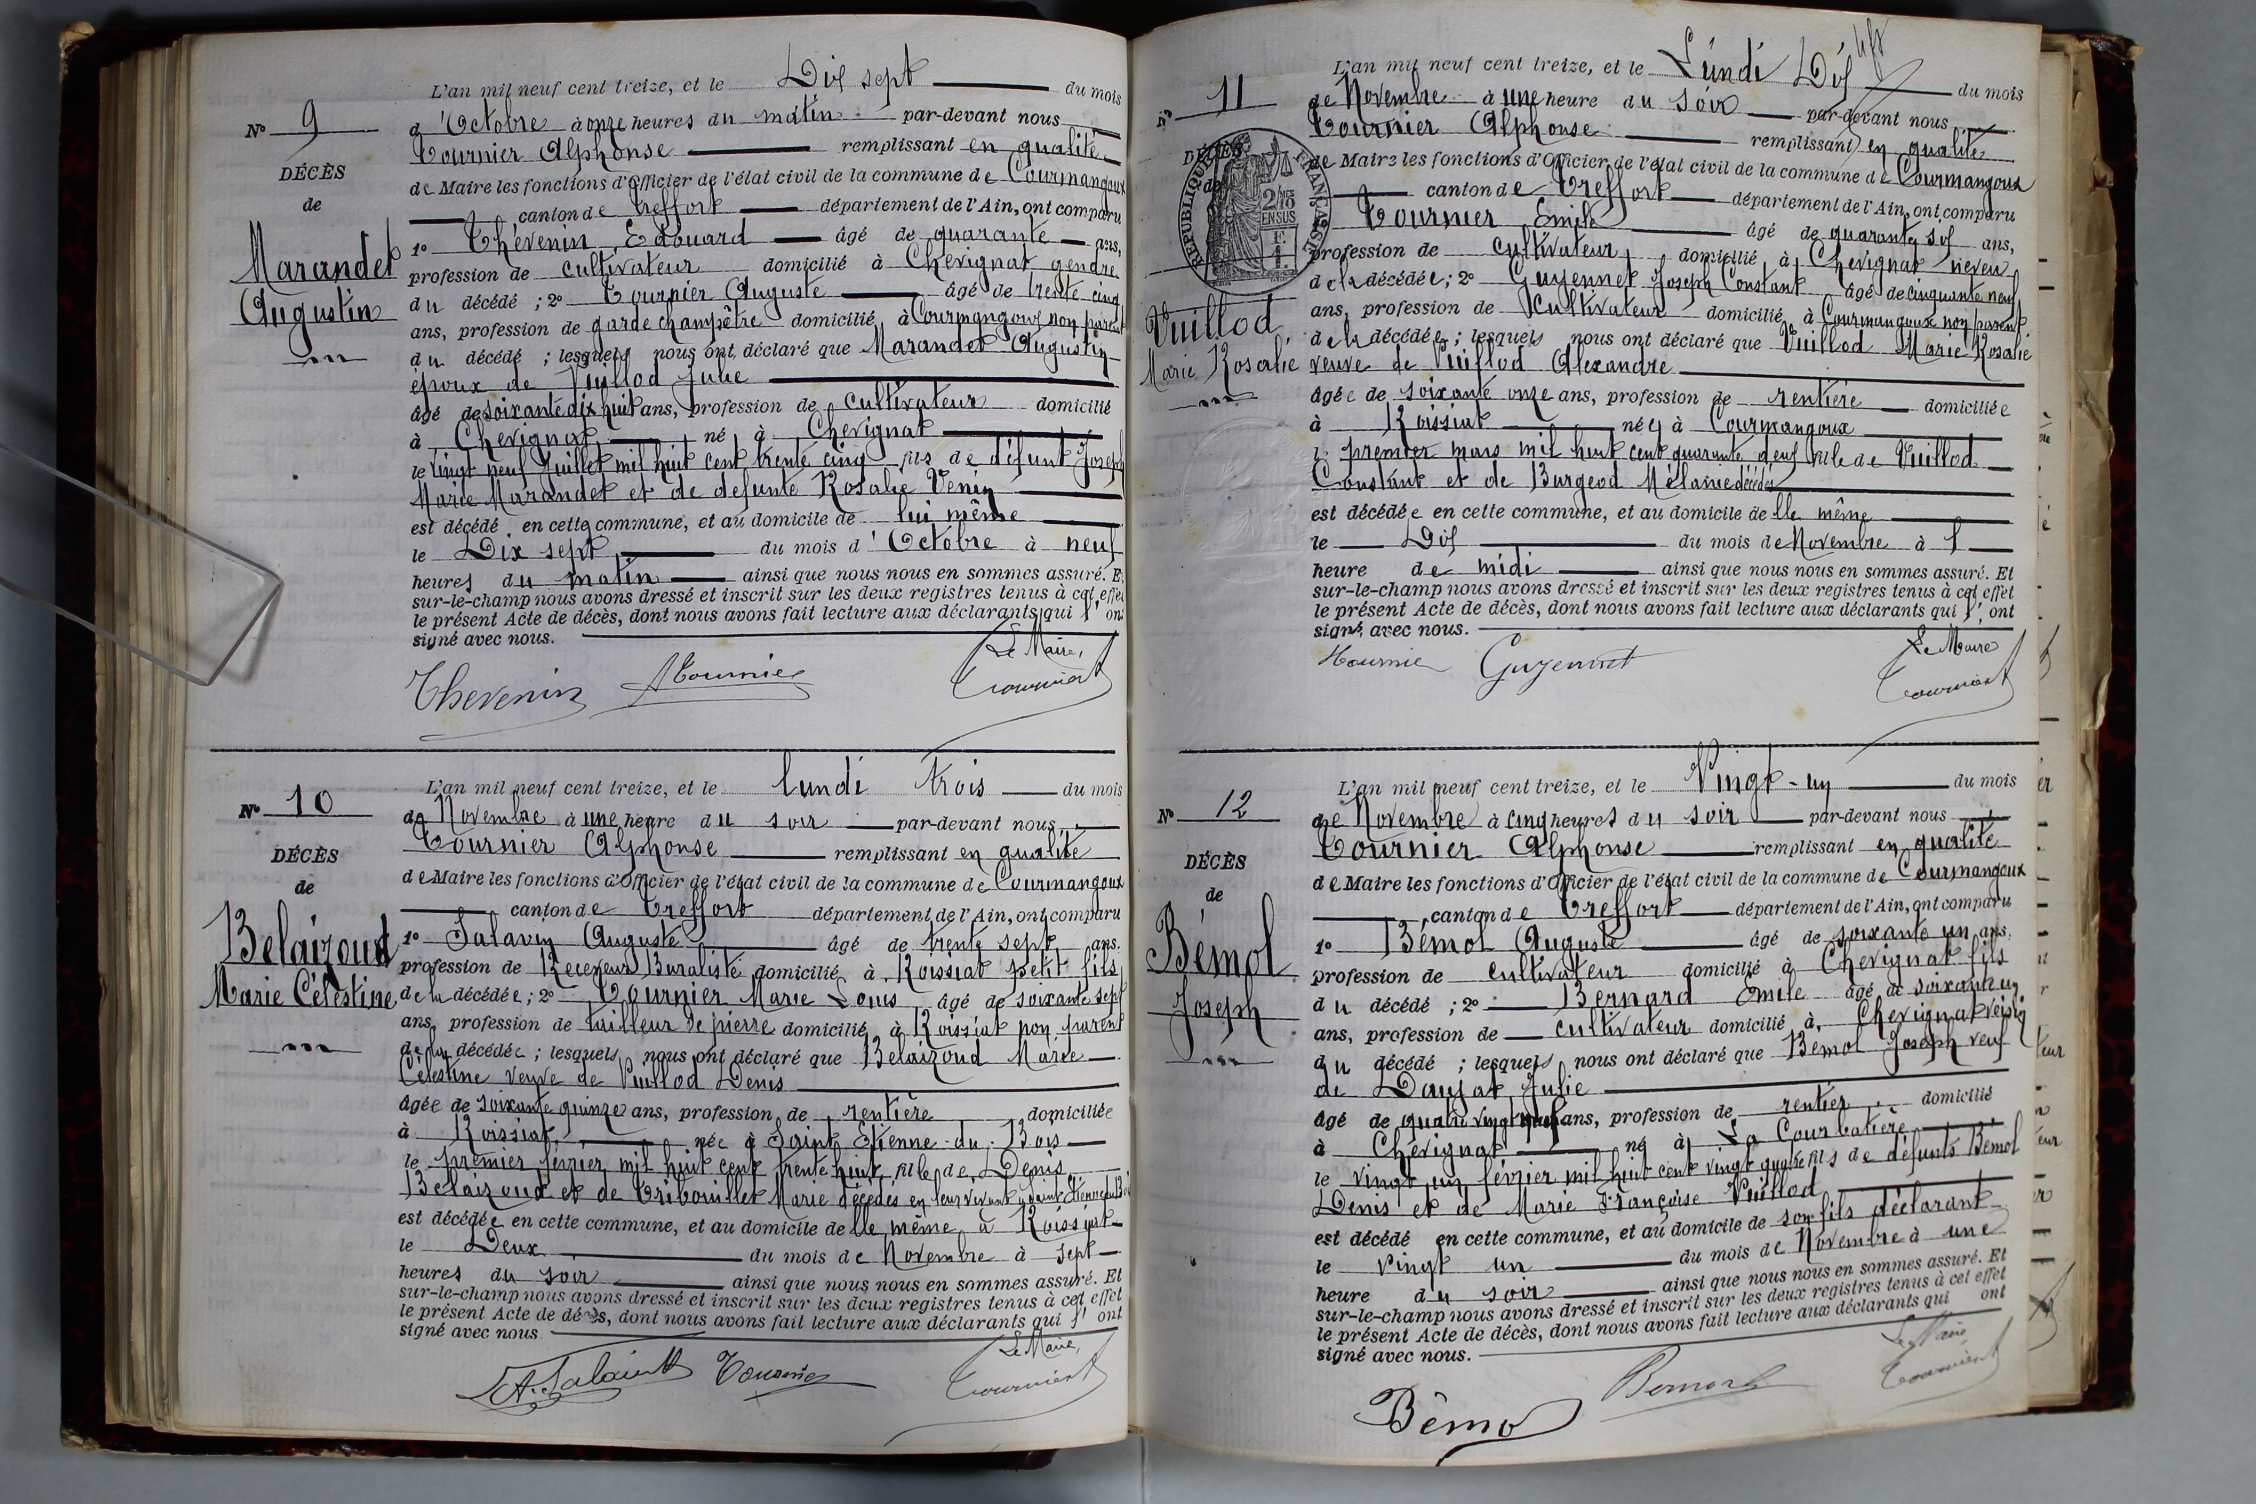 L'an mil neuf cent treize, et le Dix sept du mois
N° 9
d'Octobre à onze heures du matin par-devant nous
Tournier Alphonse remplissant en qualité
DÉCÈS
de Maire les fonctions d'Officier de l'état civil de la commune de Courmangoux
de
canton de Treffort département de l'Ain, ont comparu
Marandet
Augustin
1° Thévenin Edouard âgé de quarante ans,
profession de cultivateur domicilié à Chevignat gendre
du décédé ; 2° Tournier Auguste âgé de trente cinq
ans, profession de garde champêtre domicilié à Courmangoux non parent
du décédé ; lesquels nous ont déclaré que Marandet Augustin
époux de Vuillod Julie
âgé de soixante dix huit ans, profession de cultivateur domicilié
à Chevignat né à Chevignat
le vingt neuf Juillet mil huit cent trente cinq fils de défunt Joseph
Marie Marandet et de defunte Rosalie Venin
est décédé en cette commune, et au domicile de lui même
le Dix sept du mois d'Octobre à neuf
heures du matin ainsi que nous nous en sommes assuré. Et
sur-le-champ nous avons dressé et inscrit sur les deux registres tenus à cet effet
le présent Acte de décès, dont nous avons fait lecture aux déclarants qui l'ont
signé avec nous.
Le Maire,
Thevenin Tournier Tournier
L'an mil neuf cent treize, et le lundi trois du mois
N° 10
de Novembre à une heure du soir par-devant nous
Tournier Alphonse remplissant en qualité
DÉCÈS
de Maire les fonctions d'Officier de l'état civil de la commune de Courmangoux
de
canton de Treffort département de l'Ain, ont comparu
Belaizoud
Marie Célestine
1° Salavin Auguste âgé de trente sept ans.
profession de Receveur Buraliste domicilié à Roissiat petit fils
de la décédée ; 2° Tournier Marie Louis âgé de soixante sept
ans, profession de tailleur de pierre domicilié à Roissiat non parent
de la décédée ; lesquels nous ont déclaré que Belaizoud Marie
Célestine veuve de Vuillod Denis
âgée de soixante quinze ans, profession de rentière domiciliée
à Roissiat née à Saint Etienne-du-Bois
le premier février mil huit cent trente huit fille de Denis
Belaizoud et de Tribouillet Marie décédés en leur vivant à Saint Etienne du Bois
est décédée en cette commune, et au domicile de lle même à Roissiat
le Deux du mois de Novembre à sept
heures du soir ainsi que nous nous en sommes assuré. Et
sur-le-champ nous avons dressé et inscrit sur les deux registres tenus à cet effet
le présent Acte de décès, dont nous avons fait lecture aux déclarants qui l'ont
signé avec nous
Le Maire,
Tournier Tournier
L'an mil neuf cent treize, et le Lundi Dix du mois
N° 11
de Novembre à une heure du soir par-devant nous
Tournier Alphonse remplissant en qualité
DÉCÈS
de
RÉPUBLIQUE FRANÇAISE
2/10 EN SUS
de Maire les fonctions d'Officier de l'état civil de la commune de Courmangoux
canton de Treffort département de l'Ain, ont comparu
Tournier Emile âgé de quarante six ans,
profession de cultivateur domicilié à Chevignat neveu
de la décédée ; 2° Guyennet Joseph Constant âgé de cinquante neuf
Vuillod
Marie Rosalie
ans, profession de Cultivateur domicilié à Courmangoux non parent
de la décédée ; lesquels nous ont déclaré que Vuillod Marie Rosalie
veuve de Vuillod Alexandre
âgée de soixante onze ans, profession de rentière domiciliée
à Roissiat née à Courmangoux
le premier mars mil huit cent quarante deux fille de Vuillod
Constant et de Burgeod Mélanie décédés
est décédée en cette commune, et au domicile de lle même
le Dix du mois de Novembre à 1
heure de midi ainsi que nous nous en sommes assuré. Et
sur-le-champ nous avons dressé et inscrit sur les deux registres tenus à cet effet
le présent Acte de décès, dont nous avons fait lecture aux déclarants qui l'ont
signé avec nous.
Le Maire
Tournier Guyennet Tournier
L'an mil neuf cent treize, et le Vingt-un du mois
N° 12
de Novembre à cinq heures du soir par-devant nous
Tournier Alphonse remplissant en qualité
DÉCÈS
de Maire les fonctions d'Officier de l'état civil de la commune de Courmangoux
de
canton de Treffort département de l'Ain, ont comparu
Bémol
Joseph
1° Bémol Auguste âgé de soixante un ans,
profession de cultivateur domicilié à Chevignat fils
du décédé ; 2° Bernard Emile âgé de soixante un
ans, profession de cultivateur domicilié à Chevignat voisin
du décédé ; lesquels nous ont déclaré que Bemol Joseph veuf
de Daujat Julie
âgé de quatre vingt neuf ans, profession de rentier domicilié
à Chevignat né à La Courbatière
le vingt un février mil huit cent vingt quatre fils de défunts Bémol
Denis et de Marie Françoise Vuillod
est décédé en cette commune, et au domicile de son fils déclarant
le vingt un du mois de Novembre à une
heure du soir ainsi que nous nous en sommes assuré. Et
sur-le-champ nous avons dressé et inscrit sur les deux registres tenus à cet effet
le présent Acte de décès, dont nous avons fait lecture aux déclarants qui ont
signé avec nous.
Le Maire
Bémol Bernard Tournier